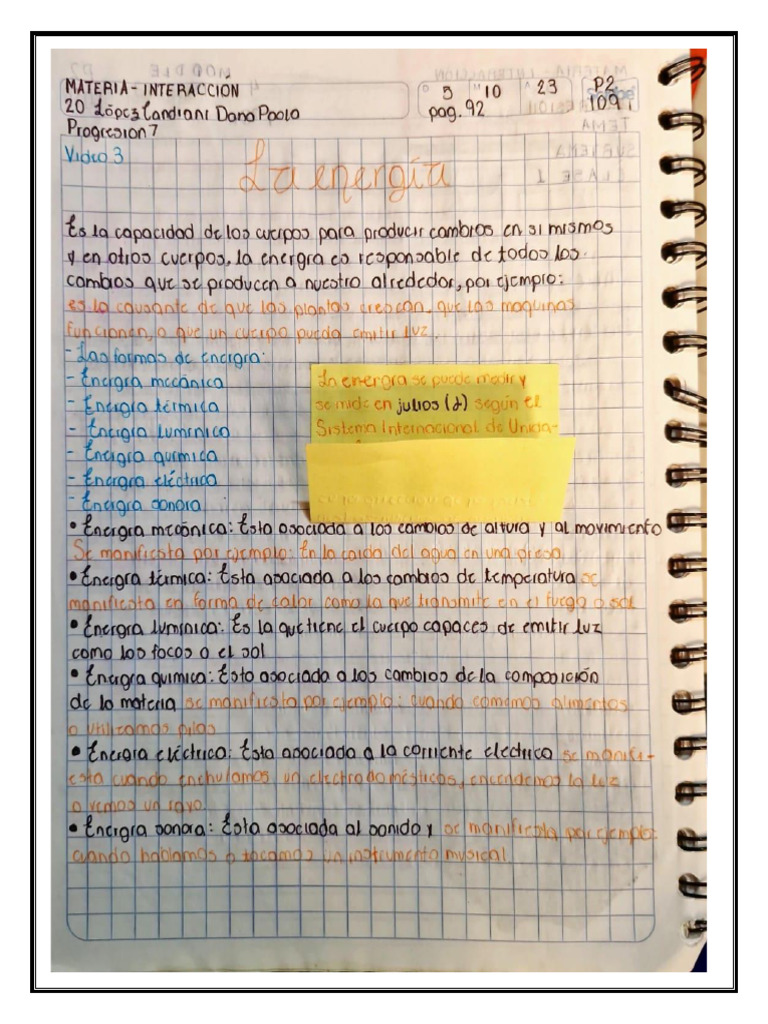 MATERIA - INTERACCION
20 López Candiani Dana Paola
Progresion 7
D 5 M 10 A 23
pag. 92
P2
109
Video 3
La energía
Es la capacidad de los cuerpos para producir cambios en si mismos
y en otros cuerpos, la energía es responsable de todos los
cambios que se producen a nuestro alrededor, por ejemplo:
es la causante de que las plantas crezcan, que las maquinas
funcionen, o que un cuerpo pueda emitir luz.
- Las formas de Energía:
- Energía mecánica
- Energía térmica
- Energía luminica
- Energía quimica
- Energía eléctrica
- Energía sonora
La energía se puede medir y
se mide en julios (J) según el
Sistema Internacional de Unida-
• Energía mecánica: Esta asociada a los cambios de altura y al movimiento
Se manifiesta por ejemplo: En la caida del agua en una presa
• Energía térmica: Esta asociada a los cambios de temperatura se
manifiesta en forma de calor como la que transmite en el fuego o sol
• Energía luminica: Es la que tiene el cuerpo capaces de emitir luz
como los focos o el sol
• Energía quimica: Esta asociada a los cambios de la composición
de la materia se manifiesta por ejemplo: cuando comemos alimentos
o utilizamos pilas
• Energía eléctrica: Esta asociada a la corriente electrica se manifi-
esta cuando enchulamos un electrodomésticos, encendemos la luz
o vemos un rayo
• Energía sonora: Esta asociada al sonido y se manifiesta por ejemplo:
cuando hablamos o tocamos un instrumento musical